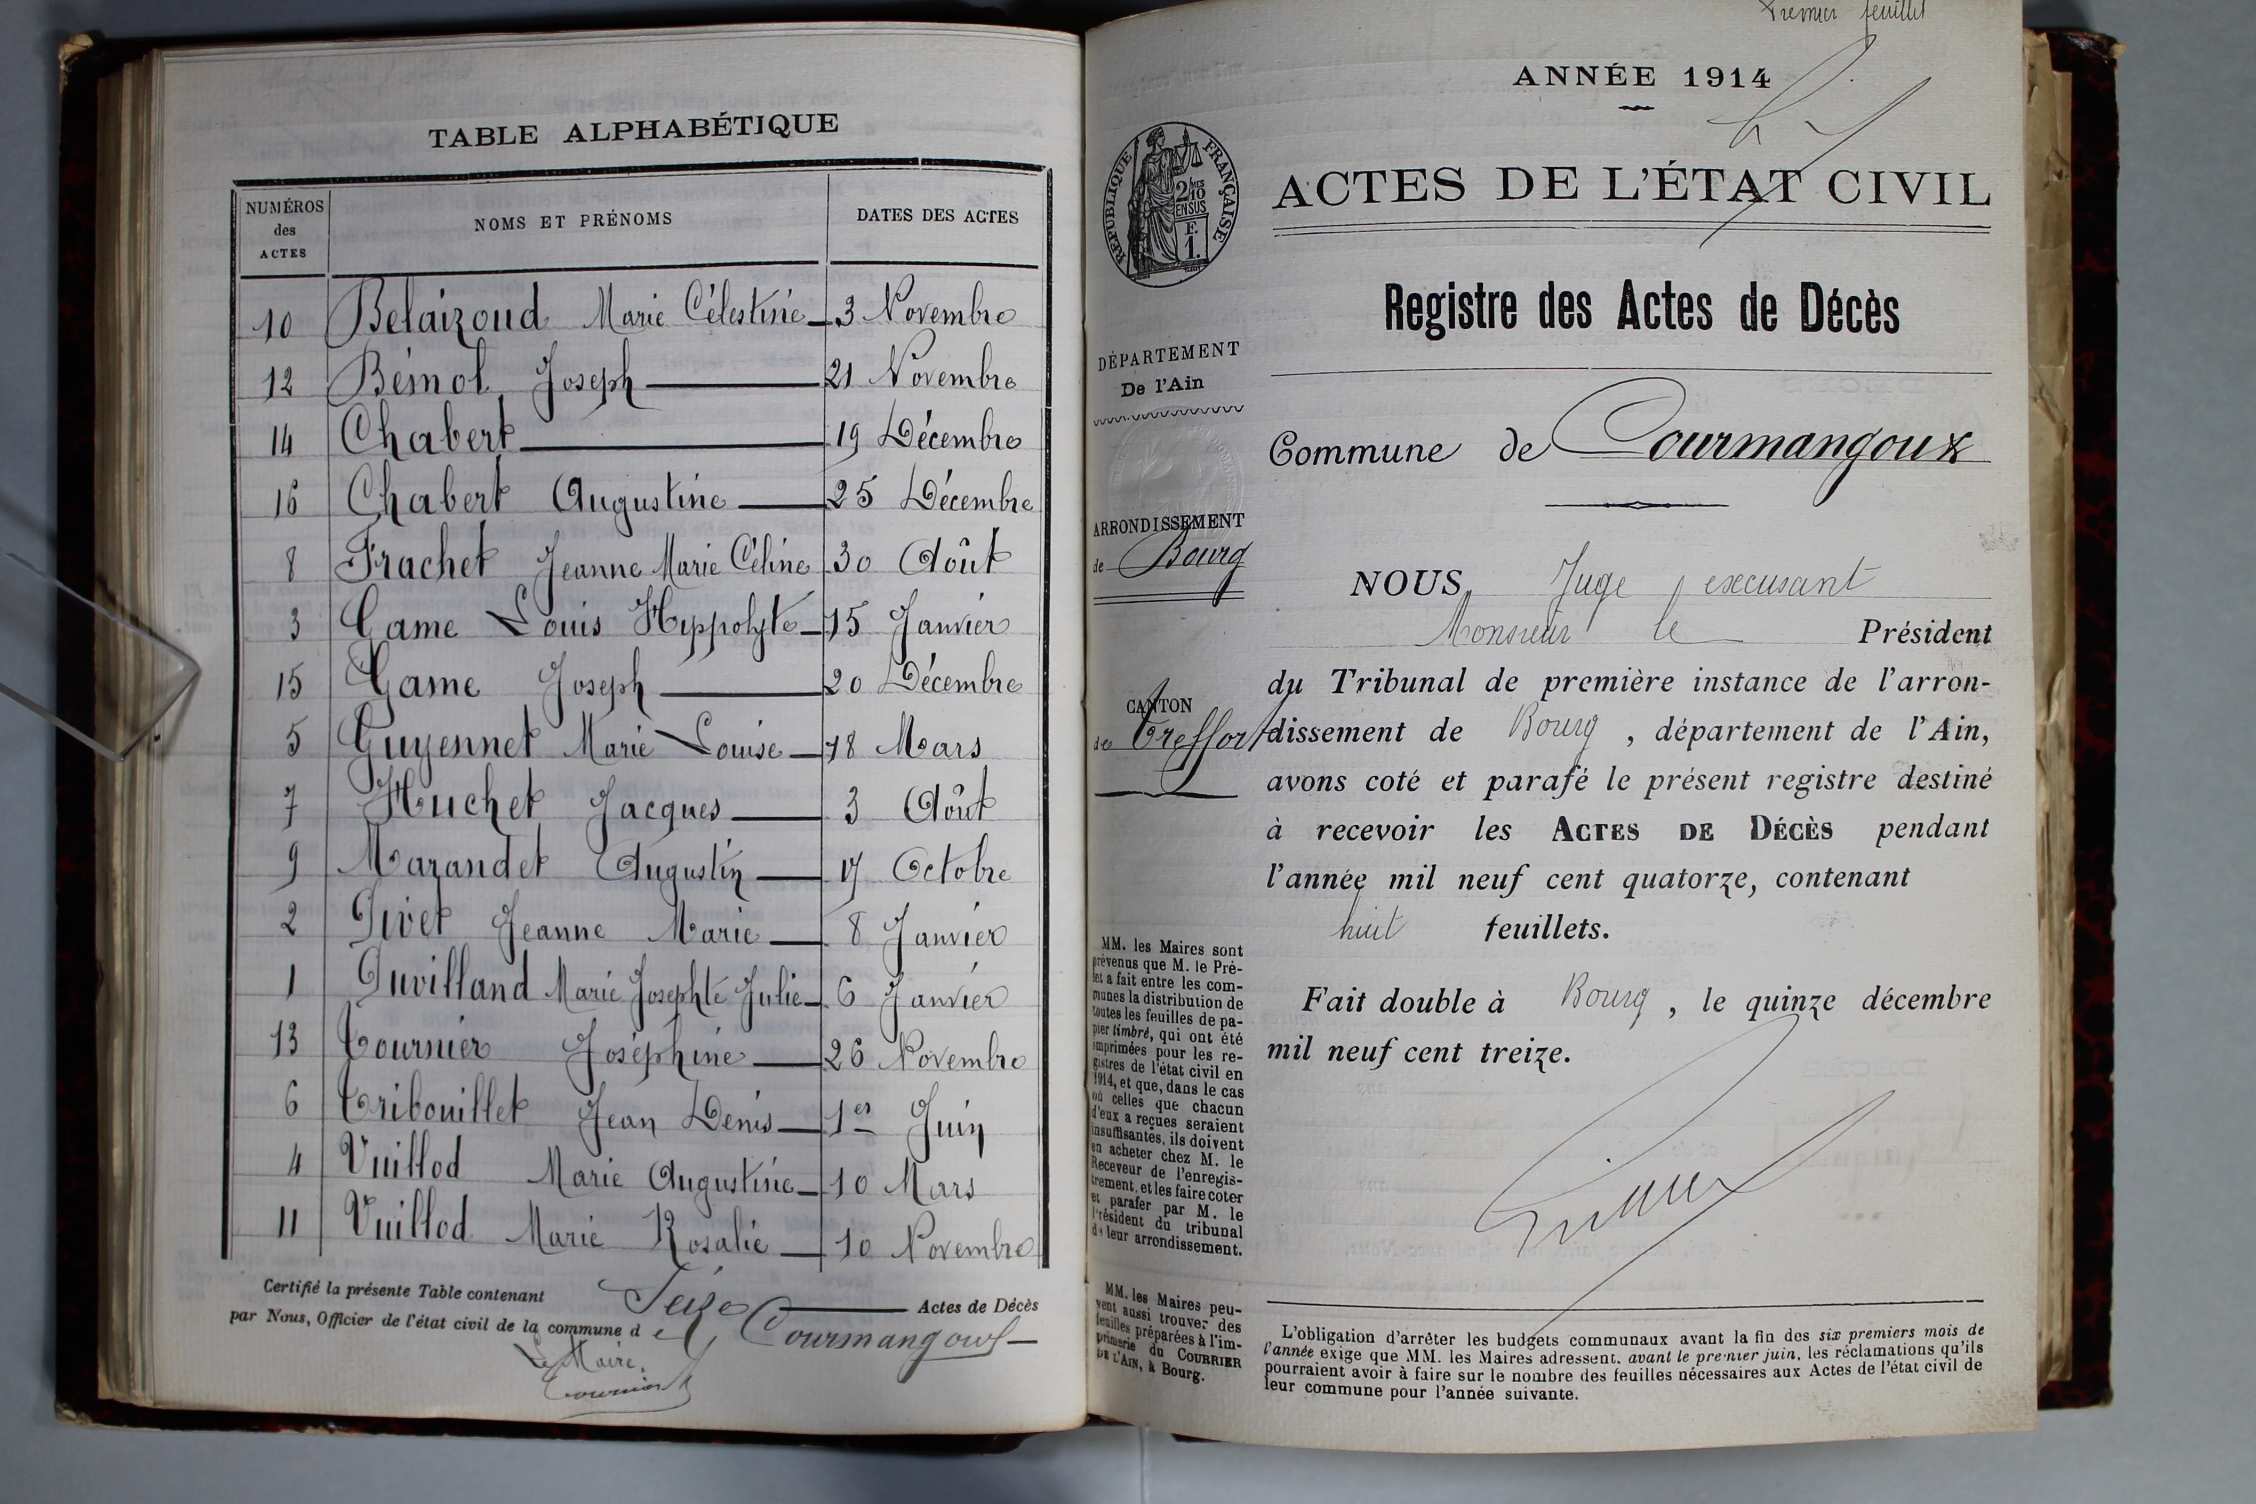 TABLE ALPHABÉTIQUE
NUMÉROS des ACTES
NOMS ET PRÉNOMS
DATES DES ACTES
10 Belaizoud Marie Célestine 3 Novembre
12 Bémol Joseph 21 Novembre
14 Chabert 19 Décembre
16 Chabert Augustine 25 Décembre
8 Frachet Jeanne Marie Céline 30 Août
3 Game Louis Hippolyte 15 Janvier
15 Game Joseph 20 Décembre
5 Guyennet Marie Louise 18 Mars
7 Huchet Jacques 3 Août
9 Marandet Augustin 17 Octobre
2 Pivet Jeanne Marie 8 Janvier
1 Puvilland Marie Josephte Julie 6 Janvier
13 Tournier Joséphine 26 Novembre
6 Tribouillet Jean Denis 1er Juin
4 Vuillod Marie Augustine 10 Mars
11 Vuillod Marie Rosalie 10 Novembre
Certifié la présente Table contenant Seize Actes de Décès
par Nous, Officier de l'état civil de la commune de Courmangoux
Le Maire,
Tournier
Premier feuillet
ANNÉE 1914
ACTES DE L'ÉTAT CIVIL
RÉPUBLIQUE FRANÇAISE
2/10 MES
EN SUS
F.
1.
Registre des Actes de Décès
DÉPARTEMENT
De l'Ain
Commune de Courmangoux
ARRONDISSEMENT
de Bourg
NOUS, Juge excusant
Monsieur le Président
du Tribunal de première instance de l'arron-
CANTON
de Treffort
dissement de Bourg, département de l'Ain,
avons coté et parafé le présent registre destiné
à recevoir les ACTES DE DÉCÈS pendant
l'année mil neuf cent quatorze, contenant
huit feuillets.
Fait double à Bourg, le quinze décembre
mil neuf cent treize.
MM. les Maires sont
prévenus que M. le Pré-
fet a fait entre les com-
munes la distribution de
toutes les feuilles de pa-
pier timbré, qui ont été
imprimées pour les re-
gistres de l'état civil en
1914, et que, dans le cas
où celles que chacun
d'eux a reçues seraient
insuffisantes, ils doivent
en acheter chez M. le
Receveur de l'enregis-
trement, et les faire coter
et parafer par M. le
Président du tribunal
de leur arrondissement.
MM. les Maires peu-
vent aussi trouver des
feuilles préparées à l'im-
primerie du COURRIER
DE L'AIN, à Bourg.
L'obligation d'arrêter les budgets communaux avant la fin des six premiers mois de
l'année exige que MM. les Maires adressent, avant le premier juin, les réclamations qu'ils
pourraient avoir à faire sur le nombre des feuilles nécessaires aux Actes de l'état civil de
leur commune pour l'année suivante.